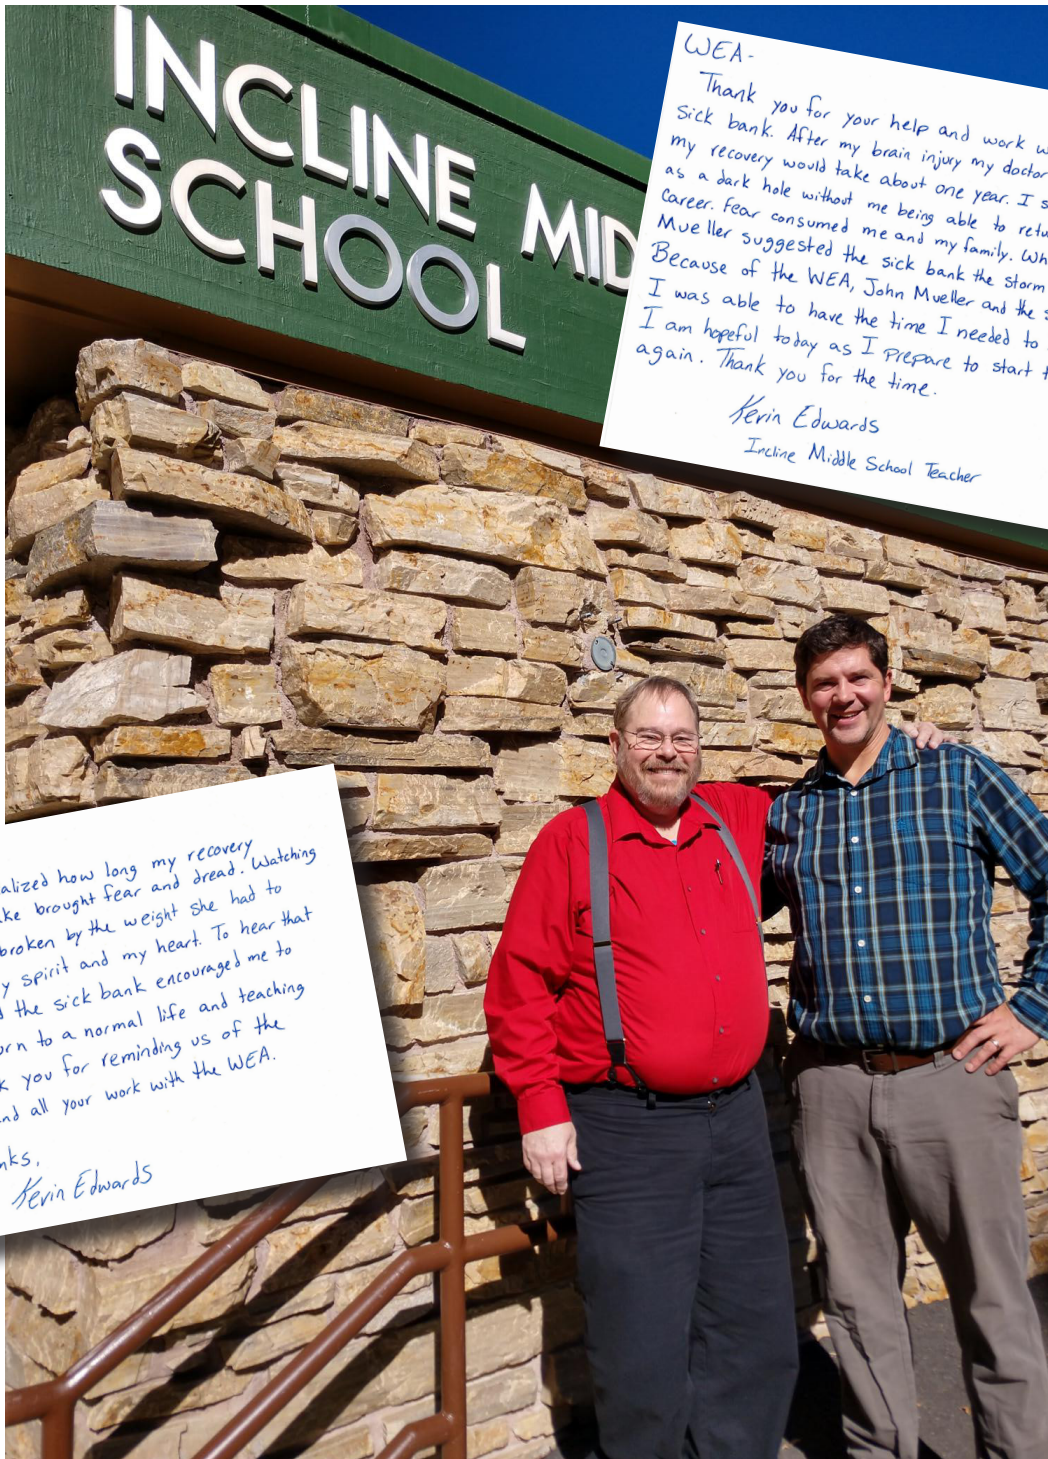 INCLINE MID
SCHOOL
WEA-
Thank you for your help and work w
sick bank. After my brain injury my doctor
my recovery would take about one year. I s
as a dark hole without me being able to retu
career. Fear consumed me and my family. Wh
Mueller suggested the sick bank the storm
Because of the WEA, John Mueller and the s
I was able to have the time I needed to
I am hopeful today as I prepare to start t
again. Thank you for the time.
Kevin Edwards
Incline Middle School Teacher
alized how long my recovery
ke brought fear and dread. Watching
broken by the weight she had to
y spirit and my heart. To hear that
d the sick bank encouraged me to
urn to a normal life and teaching
k you for reminding us of the
and all your work with the WEA.
nks,
Kevin Edwards